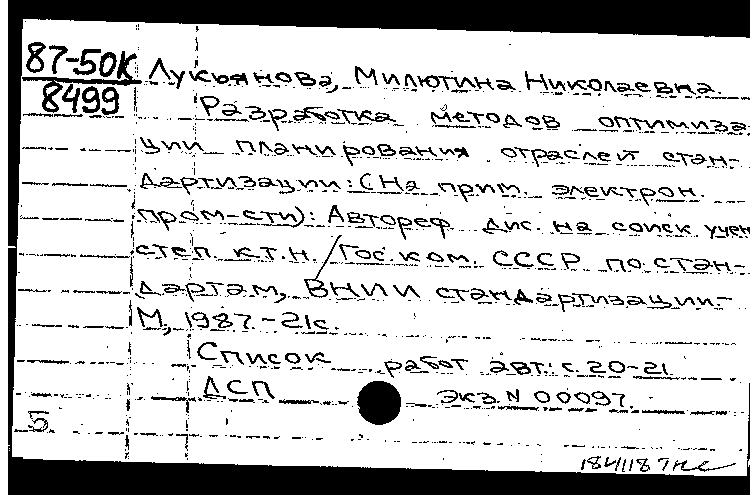 87-50К
8499
Лукьянова, Милютина Николаевна.
Разработка методов оптимиза
ции планирования отраслей стан-
дартизации: (На прим. электрон.
пром-сти): Автореф дис. на соиск учен
степ к.т.н. / Гос. ком. СССР по стан-
дартам, ВНИИ стандартизации.-
М, 1987.-21с.
Список работ авт.: с. 20-21
ДСП Экз. N 00097.
5